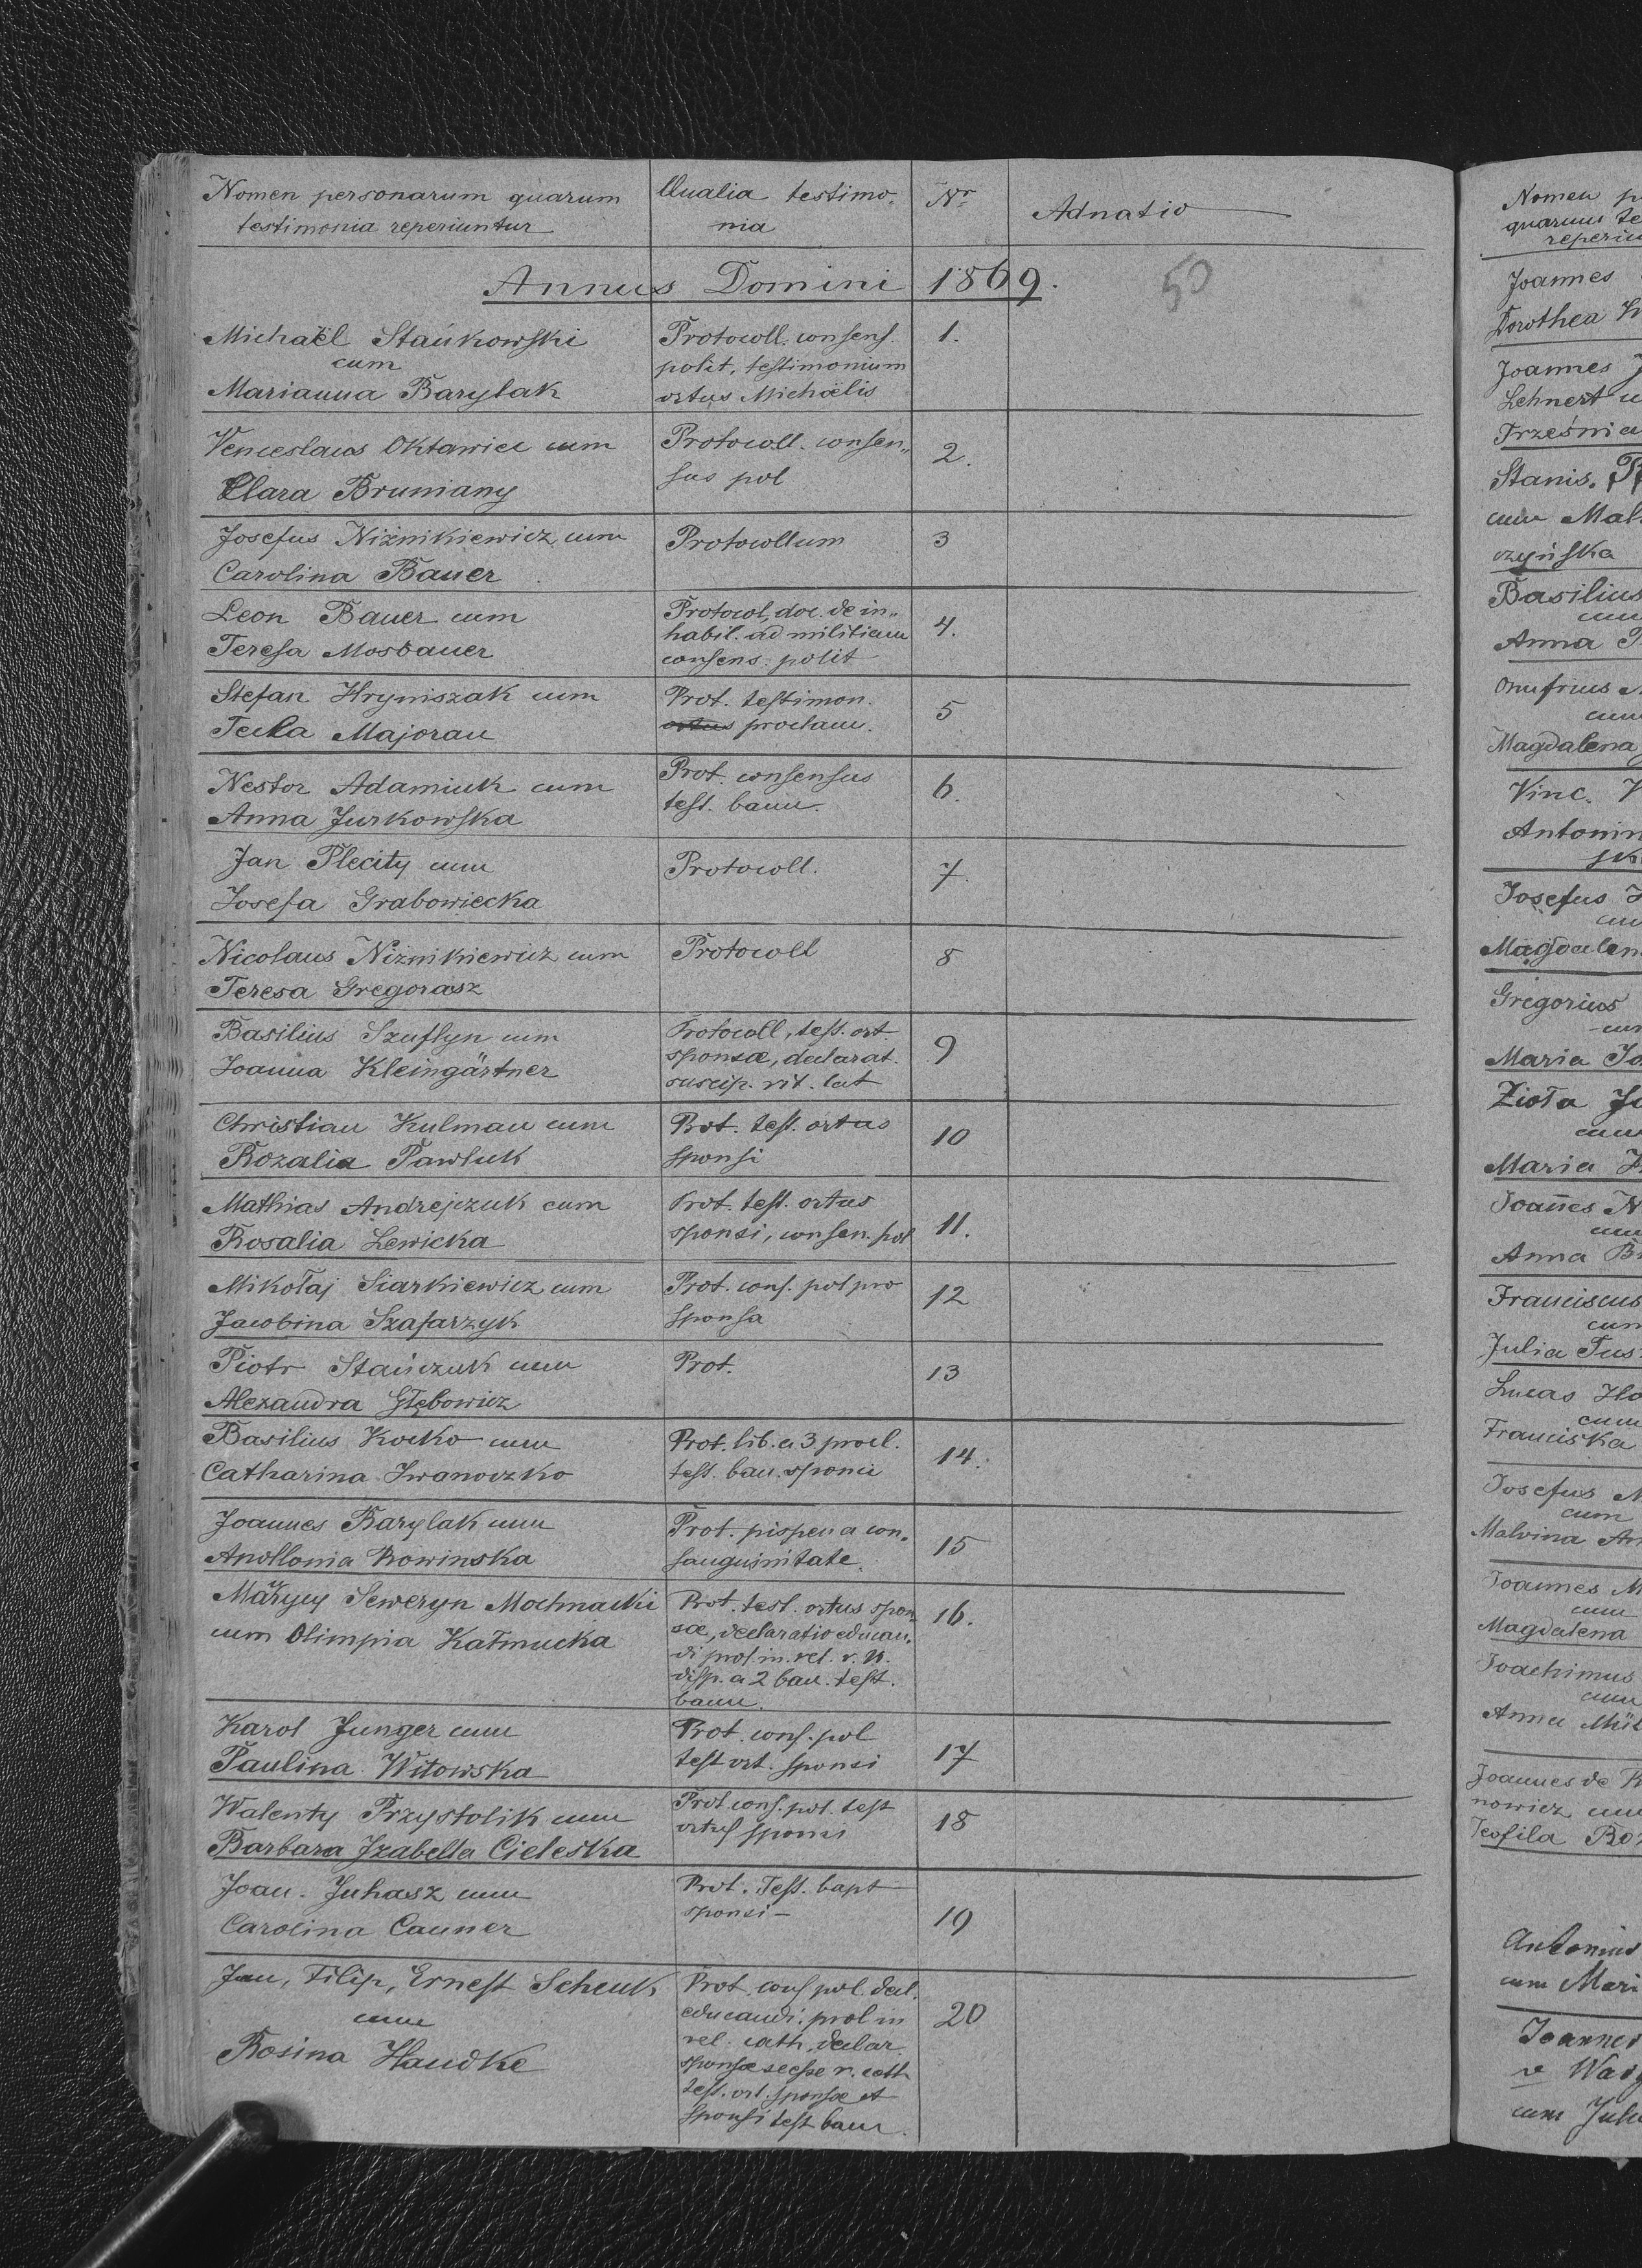 Nomen personarum quarum
testimonia reperiuntur
Qualia testimo,
nia
Nr
Adnatio
Annus Domini 1869.
50
Michaël Stańkowski
cum
Marianna Barylak
Protocoll. consens.
polit. testimonium
ortus Michaëlis
1.
Venceslaus Oktawiec cum
Clara Bruniany
Protocoll. consen„
sus pol
2.
Josefus Niżnikiewicz cum
Carolina Bauer
Protocollum
3
Leon Bauer cum
Teresa Mosbauer
Protocol, doc. de in„
habil. ad militiam
consens. polit
4.
Stefan Hryniszak cum
Tecla Majorau
Prot. testimon.
ortus proclam.
5
Nestor Adamiuk cum
Anna Jurkowska
Prot. consensus
test. bann.
6.
Jan Plecity cum
Josefa Grabowiecka
Protocoll.
7.
Nicolaus Niżnikiewicz cum
Teresa Gregorasz
Protocoll
8
Basilius Szuflyn cum
Joanna Kleingärtner
Protocoll, test. ort.
sponsæ, declarat.
suscip. rit. lat
9
Christian Kulman cum
Rozalia Pawluk
Prot. test. ortus
sponsi
10
Mathias Andrejczuk cum
Rosalia Lewicka
Prot. test. ortus
sponsi, consen. pol
11.
Mikołaj Siarkiewicz cum
Jacobina Szafarzyk
Prot. cons. pol pro
sponsa
12
Piotr Stańczuk cum
Alexandra Głębowicz
Prot.
13
Basilius Kocko cum
Catharina Iwanoczko
Prot. lib. a 3 procl.
test. ban. sponsi
14.
Joannes Barylak cum
Apollonia Rowinska
Prot. dispen a con„
sanguinitate.
15
Maurycy Seweryn Mochnacki
cum Olimpia Kałmucka
Prot. test. ortus spon
sæ, declaratio educan„
di prol. in. rel. r. k.
disp. a 2 ban. test.
bann.
16.
Karol Junger cum
Paulina Witowska
Prot. cons. pol
test ort. sponsi
17
Walenty Przystolik cum
Barbara Izabella Cieleska
Prot cons. pol. test
ortus sponsi
18
Joan. Juhasz cum
Carolina Cauner
Prot. Test. bapt
sponsi –
19
Jan, Filip, Ernest Schenk
cum
Rosina Handke
Prot. cons pol. decl.
educandi. prol in
rel. cath, declar.
sponsæ secse r. cath
test. ort. sponsæ et
sponsi test bann.
20
Nomen
quarum
Joannes
Dorothea
Joannes
Lehnert
Trześnia
Stanis.
cum
Basilius
cum
Anna
Onufrius
cum
Magdalena
Vinc.
Josefus
Gregorius
Maria
Zioła
cum
Maria
Joañes
Anna
Franciscus
cum
Julia
Lucas
cum
Franciska
Josefus
cum
Malvina
Joannes
cum
Magdalena
Joachimus
cum
Anna
Joannes de
nowicz
Teofila
Antonius
cum
Joannes
cum